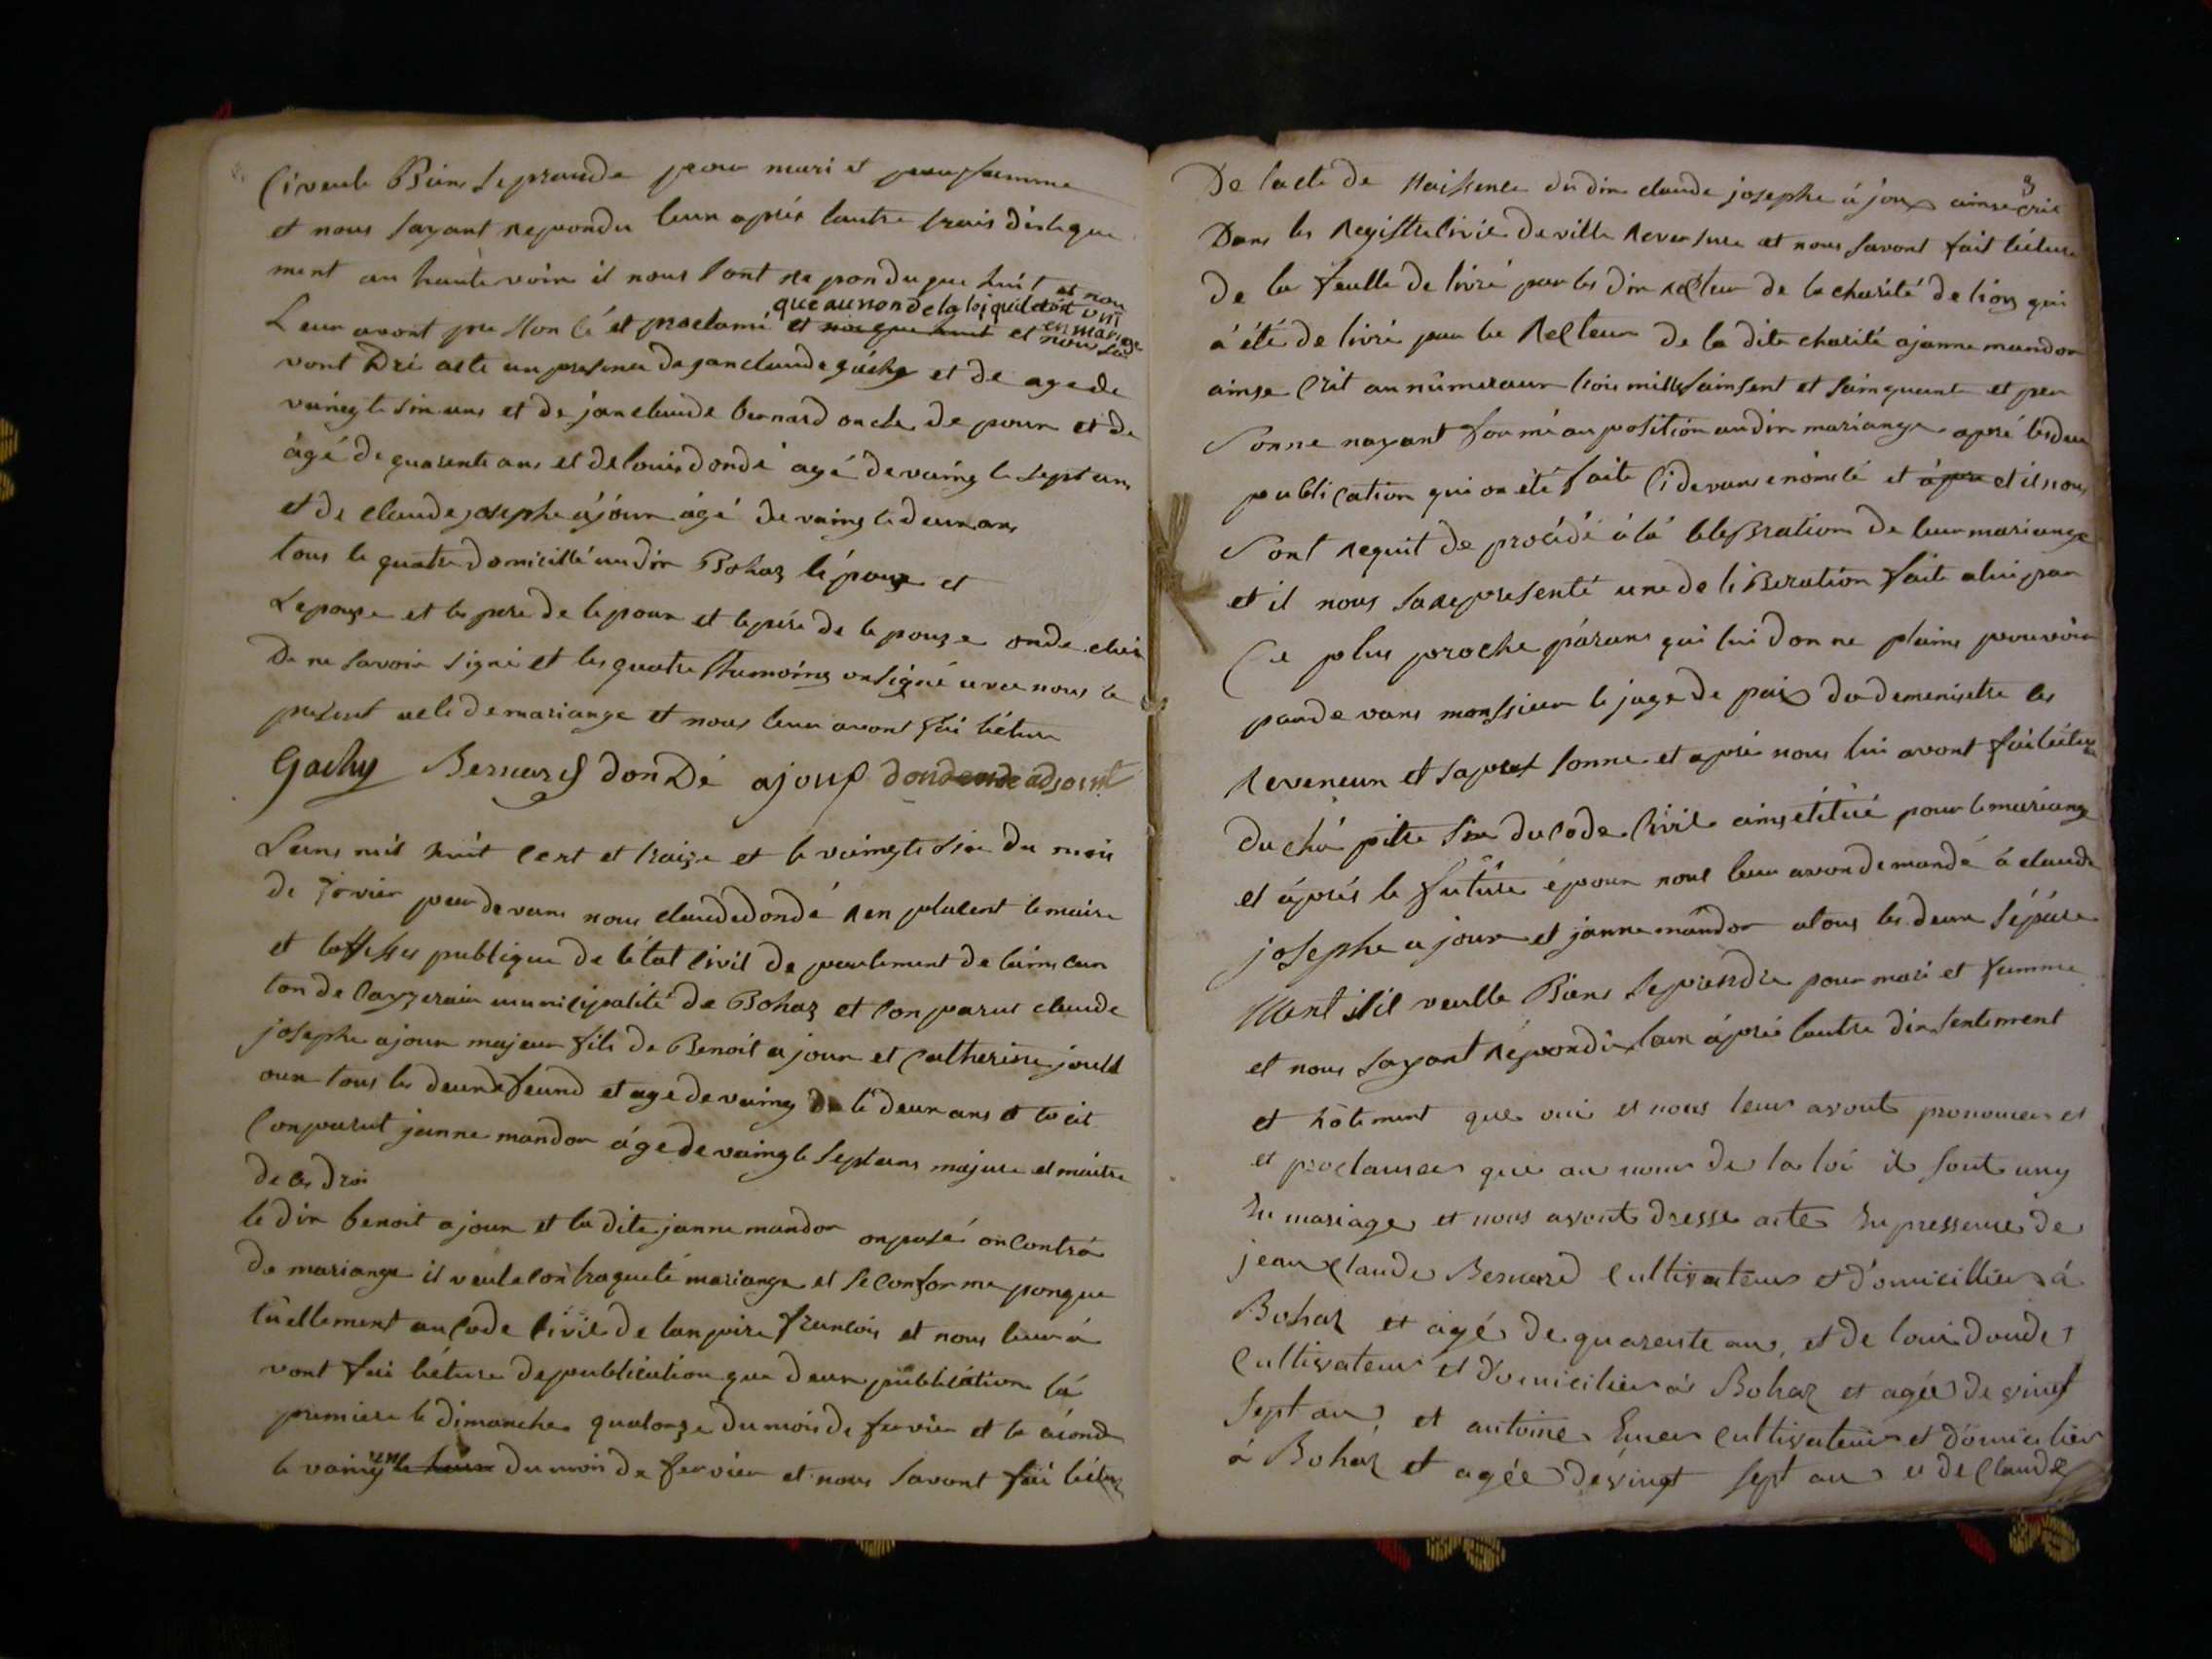 Ci veule Bien se prande pour mari et pour famme
et nous sayant repondu leun aprés lautre trais disteque
ment an haute voin il nous lont re pondu que huit et nou
que au non de la loi quil doit uni en mariage
Leur avont pro Non cé et proclamé et et nou sa
vont Dri acte un presence de jan claude gáchy et de age de
vaingte sin ans et de jan claude bernard oncle de pour et de
âgé de quarente ans et de louis dondé agé de vaing te sept ans
et de claude josephe ájour âgé de vaing te deux ans
tous le quatre domicillé au din Bohaz lépouze et
Lepouze et les pere de lepoux et lepére de lepouze onde clai
De ne savoir signé et les quatre thumoins on signé avec nous le
present acte de mariange et nous leur avont fai lécture
Gachy Bernard donDé ajoux dondé adjoint
Lans mil huit cent et traize et le vaingte sin du mois
de fevrier par devans nous claude dondé ren placent le maire
et loffisses publique de létat civil de partement de laims can
ton de Cayzeraia municipalité de Bohaz et Conparus claude
josephe ajoux majeur fils de Benoit ajoux et Catherine jould
oux tous les deux defeund et age de vaing te deux ans et
Conparut janne mandon âge de vaingte septans majure et maitre
de ces droi
le din benoit ajoux et la dite janne mandon on pasé on Contrá
de mariange il veule contraqueté mariange et se conforme ponque
tuellement au Code Civil de lanpire francois et nous leur á
vont fai lécture de publication que deux publication lá
premiere le dimanche quatorze du mois de fevrier et la ceonde
le vaing un du mois de fevrier et nous lavont fai lécture
3
De lacte de Naissence du din claude josephe ájoux ainse crit
Dans les Registre Civie de ville Reversure et nous lavont fait lécture
de la feulle de livré par les din recteur de la charité de lion qui
á été de livré par le Recteur de la dite charité a janne mandon
ainse Crit au numeraux trois mille sainsent et sainquante et per
Sonne nayant formé au position au din mariange apré les deux
publication qui on été faite Ci devans enoncé et et il nous
Sont Requit de procédé á la Celebration de leur mariange
et il nous la representé une de liberation faite a lui par
Ce plus proche párans qui lui don ne plaine pouvoir
par de vans monssieur le juge de paix dademenistre les
Reveneux et sa per sonne et apré nous lui avont fai lécture
du chá pitre sin du Code Civil ains étitué pour le mariange
et áprés le future époux nous leur avon demandé á claude
josephe ajoux et janne mandon a tous les deux sépáré
Ment sil veulle Biens se prendre pour mari et famme
et nous sayant répondu leun ápré lautre din tentement
et hôtement que oui et nous leur avont prononcer et
et proclamer que au nom de la loi il sont uny
En mariage et nous avont dresse acte En pressence de
jean Claude Bernard Cultivateur et Domicillier á
Bohaz et agé de quarente ans, et de loui dondes
Cultivateur et domicilier á Bohaz et agée de vingt
sept ans et antoine Cultivateur et domicilier
á Bohaz et agée de vingt sept ans et de Claude